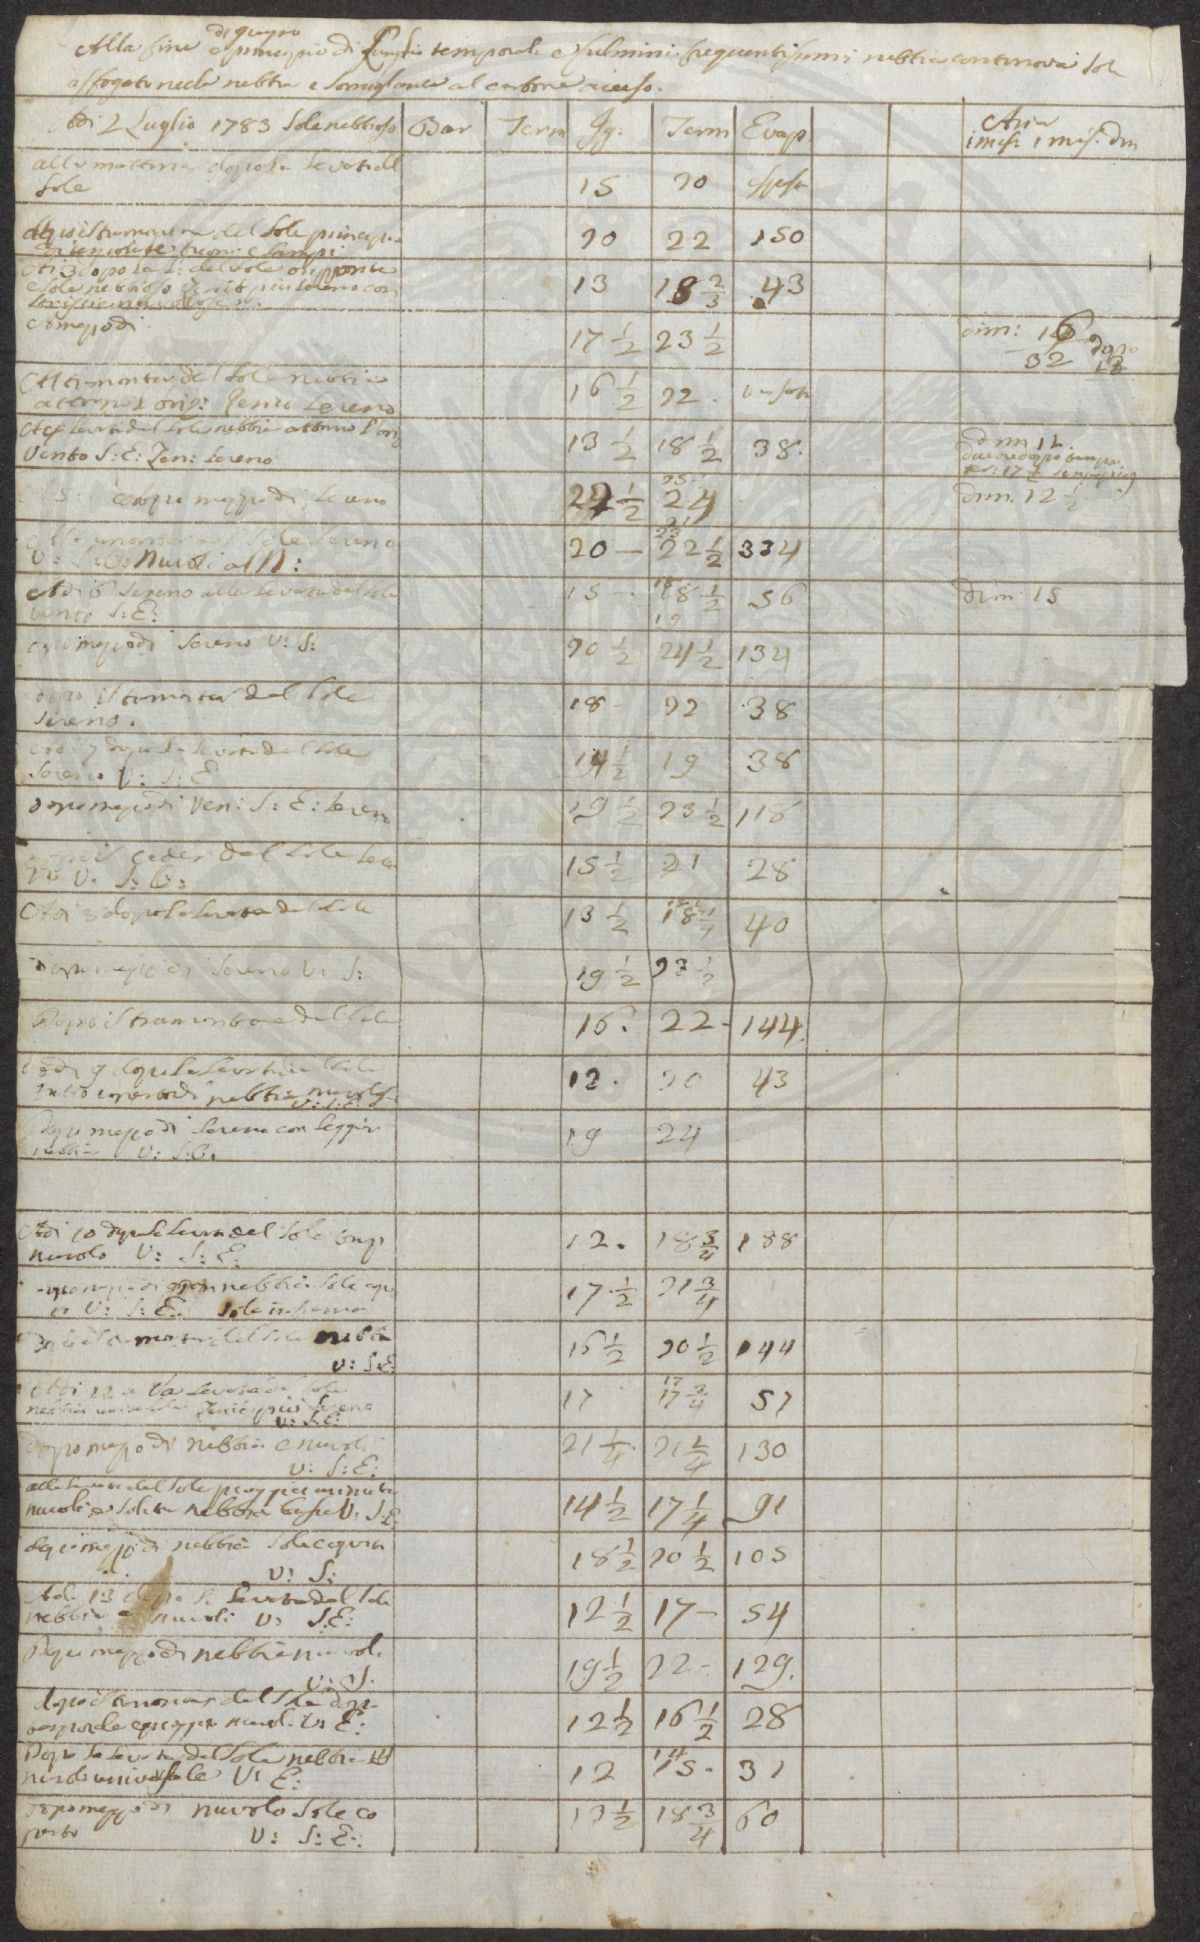 Alla fine di giugno e principio di Luglio temporali e fulmini frequentissimi nebbia continova Sole
affogato nella nebbia e somigliante al carbone acceso.
Adi 2 Luglio 1783 Sole nebbioso Bar Term Ig: Term Evap Aria
i mesi i mis: dm
alla mattina dopo la levata del
Sole 15 20 spersa
dopo il tramontar del Sole principio
di temporale tuoni e lampi 20 22 150
Adi 3 dopo la l: del Sole orizzonte
e Sole nebbioso Zenit piu sereno con
13 18 2/3 43
A mezzodi 17 1/2 23 1/2 dim: 16
32 dopo
12
Al tramontar del Sole nebbia
attorno l'oriz: Zenit Sereno 16 1/2 22.
Adi 4 levata del Sole nebbia attorno l'oriz
Vento S: E: Zen: Sereno 13 1/2 18 1/2 38. dim 12
due ore dopo
Adi 5: dopo mezzodi Sereno 24 1/2 25 24 dim. 12 1/2
Al tramontar Sole Sereno
V: S: O: Nuvoli al N: 20 — 22 1/2 334
Adi 6 Sereno alla levata del Sole
Vento S: E: 15 — 18 1/2 19 56 dim 15
dopo mezzodi Sereno V: S: 20 1/2 24 1/2 134
dopo il tramontar del Sole
Sereno. 18 - 22 38
Adi 7 dopo la levata del Sole
Sereno V: S: E 14 1/2 19 38
dopo mezzodi Ven: S: E: Sereno 19 1/2 23 1/2 118
dopo il ceder del Sole Sere
no V: S: O: 15 1/2 21 28
Adi 8 dopo la levata del Sole 13 1/2 18 40
dopo mezzodi Sereno V: S: 19 1/2 23 1/2
Dopo il tramontare del Sole 16. 22 - 144.
Adi 9 dopo la levata del Sole
tutto coperto di nebbia nuvolosa
V: S: E: 12. 20 43
Dopo mezzodi Sereno con leggier
nebbia V: S: O. 19 24
Adi 10 dopo la levata del Sole
nuvolo V: S: E: 12. 18 3/4 188
dopo mezzodi gran nebbia Sole cope
to V: S: E: Sole infermo 17 1/2 21 3/4
Dopo il tramontar del Sole nebbia
V: S: E: 16 1/2 20 1/2 144
Adi 12 a la levata del Sole
nebbia universale Zenit piu Sereno
V: S: E: 17 17 17 3/4 57
Dopo mezzodi nebbia e nuvoli
V: S: E: 21 1/4 21 1/4 130
alla levata del Sole pioggia minuta
nuvoli e solita nebbia bassa V: S: E 14 1/2 17 1/4 91
dopo mezzodi nebbia Sole coperto
V: S: 18 1/2 20 1/2 105
Adi 13 dopo la levata del Sole
nebbia e nuvoli V: S: E: 12 1/2 17 — 54
Dopo mezzodi nebbia nuvoli
V: S. 19 1/2 22 - 129.
dopo il tramontar del Sole dopo
temporale e pioggia nuvoli V: E: 12 1/2 16 1/2 28
Dopo la levata del Sole nebbia
nuvolo universale V: E: 12 14 15. 31
dopo mezzodi nuvolo Sole co
perto V: S: E: 13 1/2 18 3/4 60